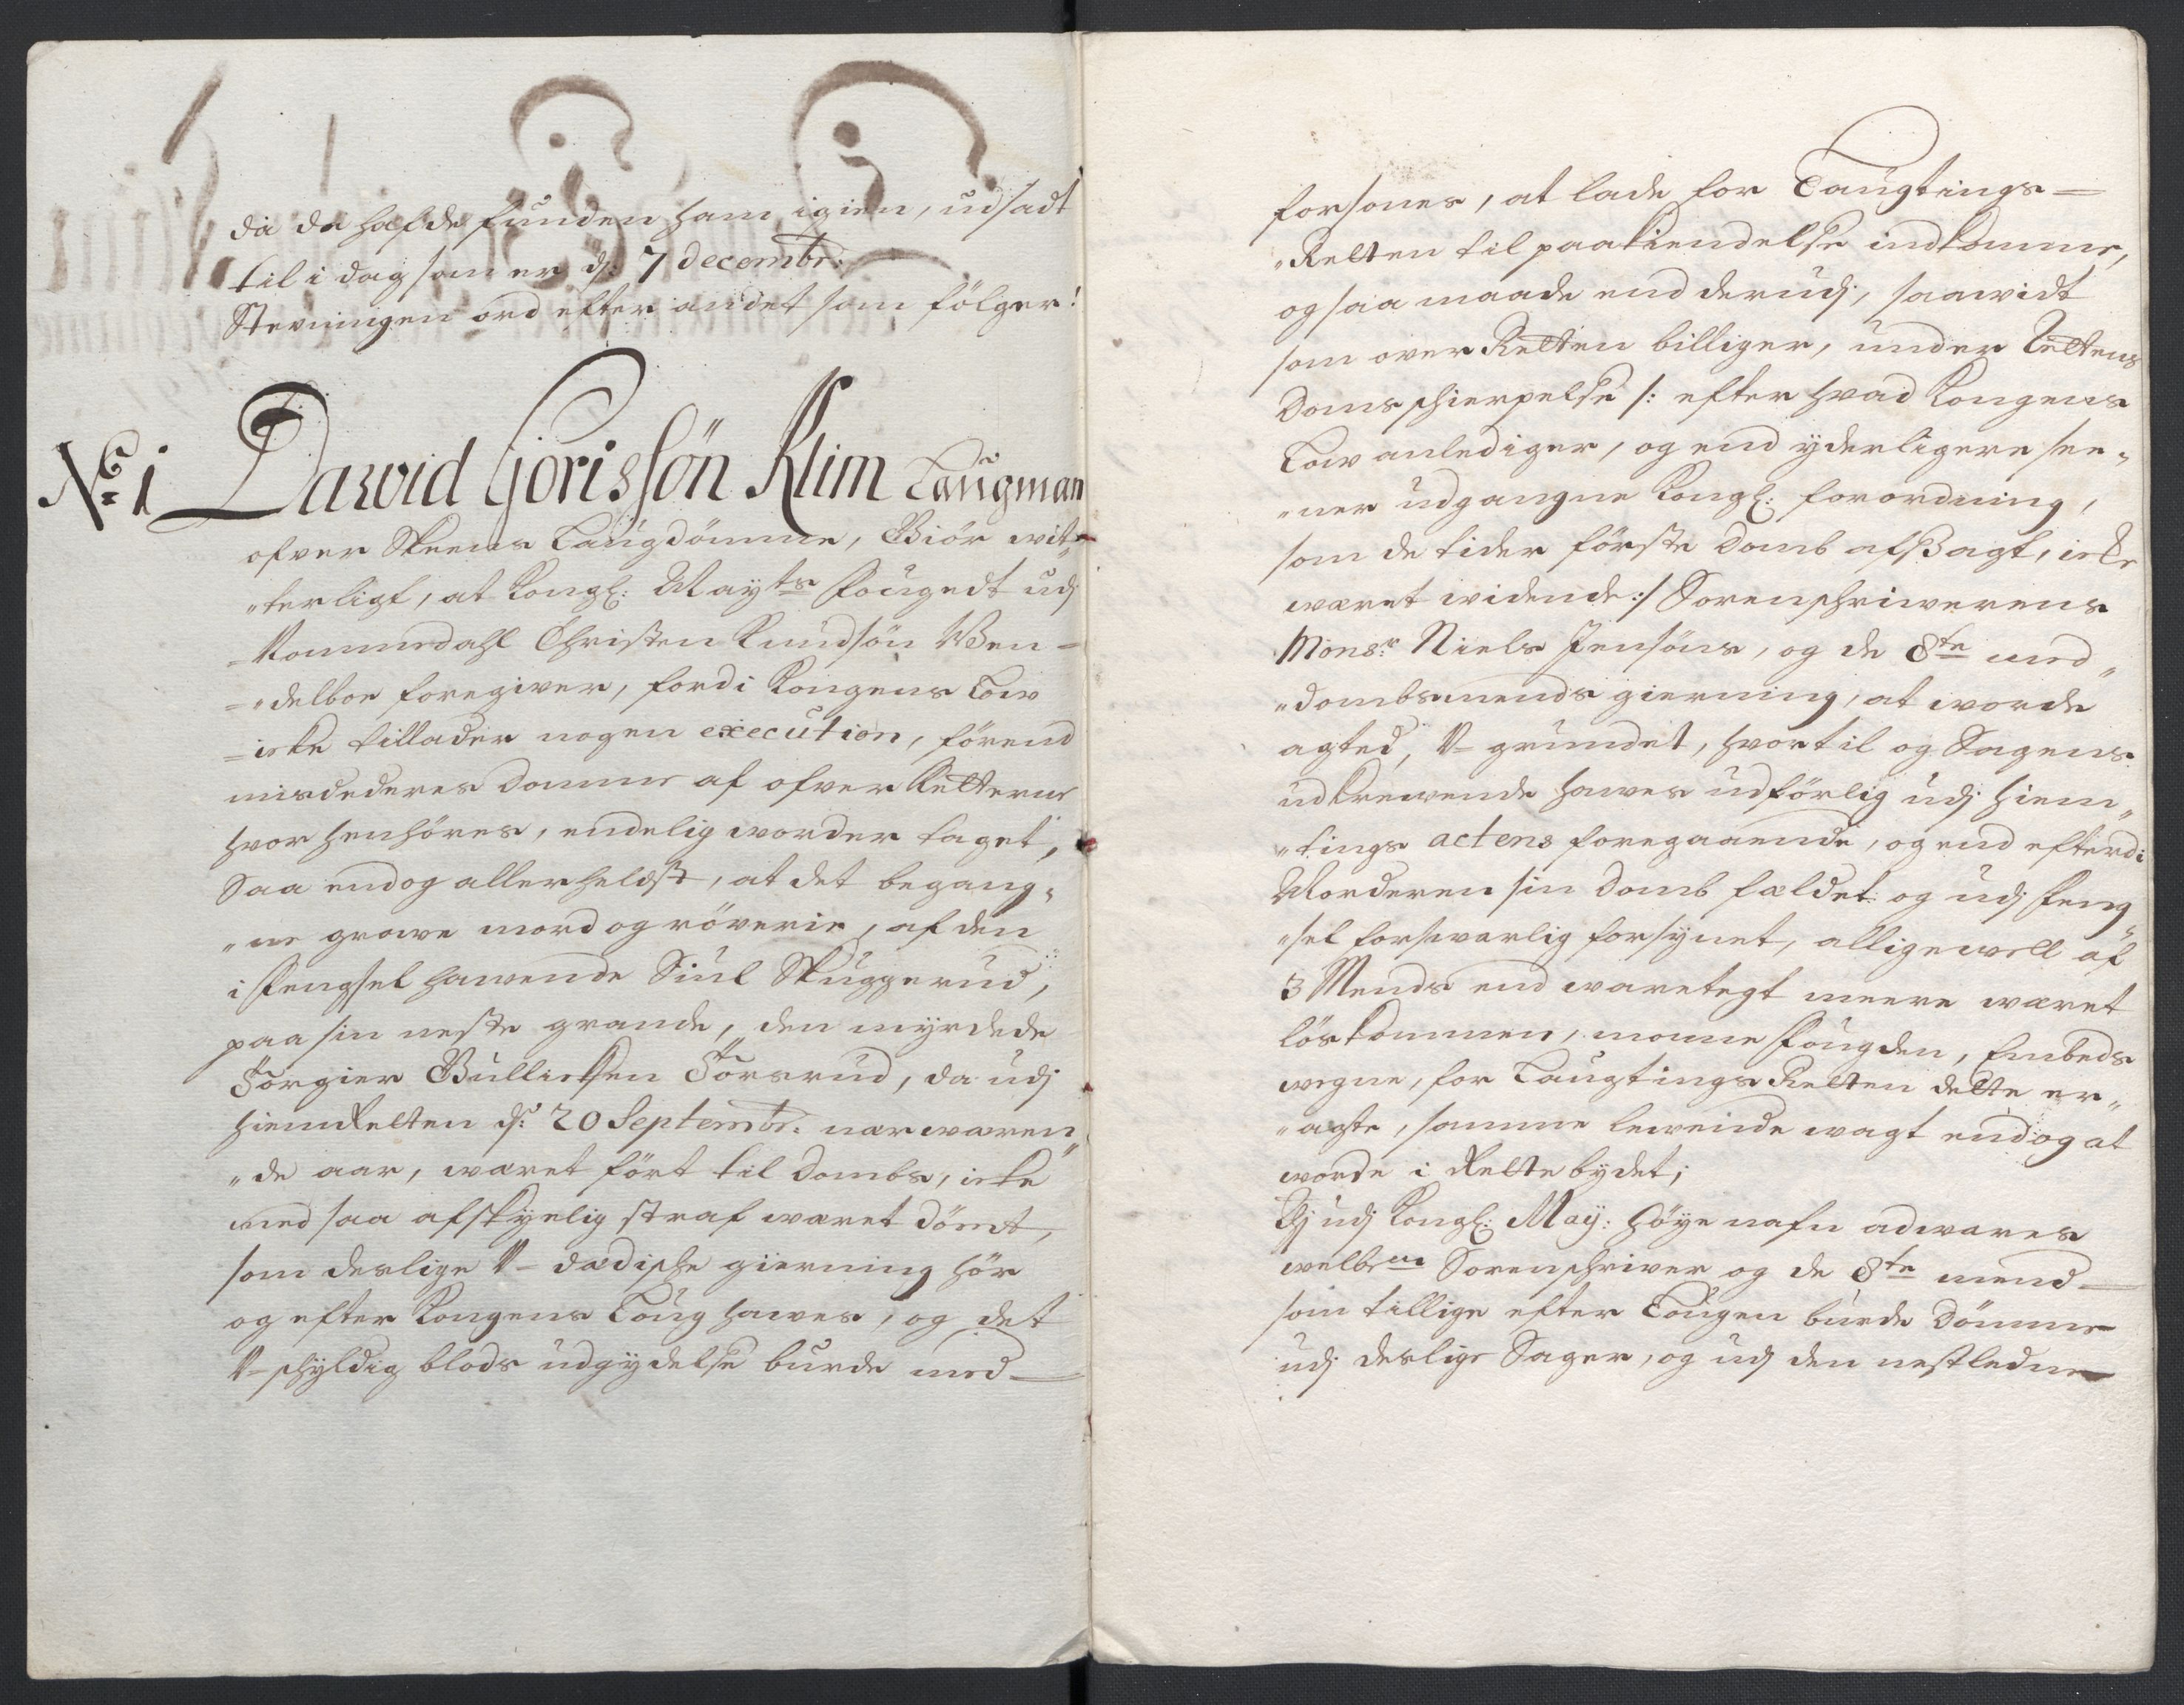 da de hafde funden ham igien, udsadt
til i dag som er d: 7 decembr:
Stevningen ord efter andet som fölger:
No 1 Dawid Gorissön Klim Laugman
ofver Skeens Laugdömme, Giör wit„
„terligt, at Kongl: Mayts Fougedt udj
Nommedahl Christen Knudsön Wen=
=„delboe foregiver, fordi Kongens Low
=icke tillader nogen execution, förend
misdederes Domme af ofver Retterne
hvor henhöres, endelig worder taget,
Saa endog allerheldst, at det begang„
„ne growe mord og röverie, af den
i Fengsel hawende Siul Skuggerud,
paa sin neste grande, den myrdede
Torgier Bullichsen Torsrud, da udj
Hiemretten d: 20 Septembr: nærwæren„
„de aar, wæret fört til Dombs, icke
med saa afskyelig straf wæret dömt,
som deslige U=dædische gierning hör
og efter Kongens Laug hawes, og det
U=schyldig blods udgydelse burde med=
forsones, at lade for Laugtings=
„Retten til paakiendelse indkomme,
og saa maade end derudj, saawidt
som over Retten billiger, under Rettens
Doms schierpelse /: efter hvad Kongens
Low anlediger, og end yderligere see„
„ner udgangne Kongl: forordning,
som de tider förste Domb afsagt, icke
wæret widende :/ Sorenschriwerens
Monsr Niels Jensöns, og de 8te med„
„dombsmends gierning, at worde
agted, U=grundet, hvortil og Sagens
udkrewende hawes udförlig udj Hiem„
„tings actens foregaaende, og end efterdi
Morderen sin Domb fældet og udj Feng„
„sel forswarlig forsynet, alligewell af
3 Mends end waretegt meere wæret
löskommen, monne Fougden, Embeds
wegne, for Laugtings Retten dette er„
„agte, samme lewende wagt endog at
worde i Rette bydet;
Thj udj Kongl: May: Höye nafn adwares
welbem Sorenschriver og de 8te mend=
som tillige efter Lougen burde Dömme
udj deslige Sager, og udj den nestledne